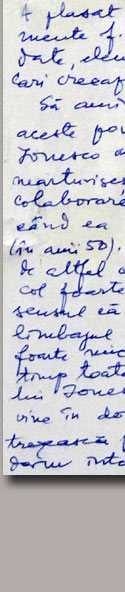 A plasat
mente f.
date, elem
cari creeaz
Să ami
aceste po
Ionesco a
marturises
colaborare
când ea
(în anii 50).
De altfel a
col foarte
sensul că
limbajul
foarte mic
timp toate
lui Iones
vine în do
trezească
dorm into